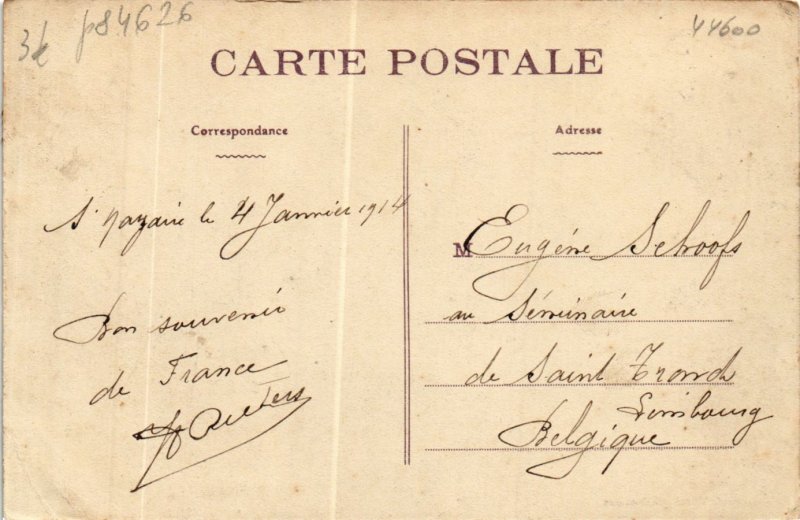 3€ p84626
44600
CARTE POSTALE
Correspondance
Adresse
St Nazaire le 4 Janvier 1914
Bon souvenir
de France
M Eugène Schoofs
au Séminaire
de Saint Trond
Limbourg
Belgique